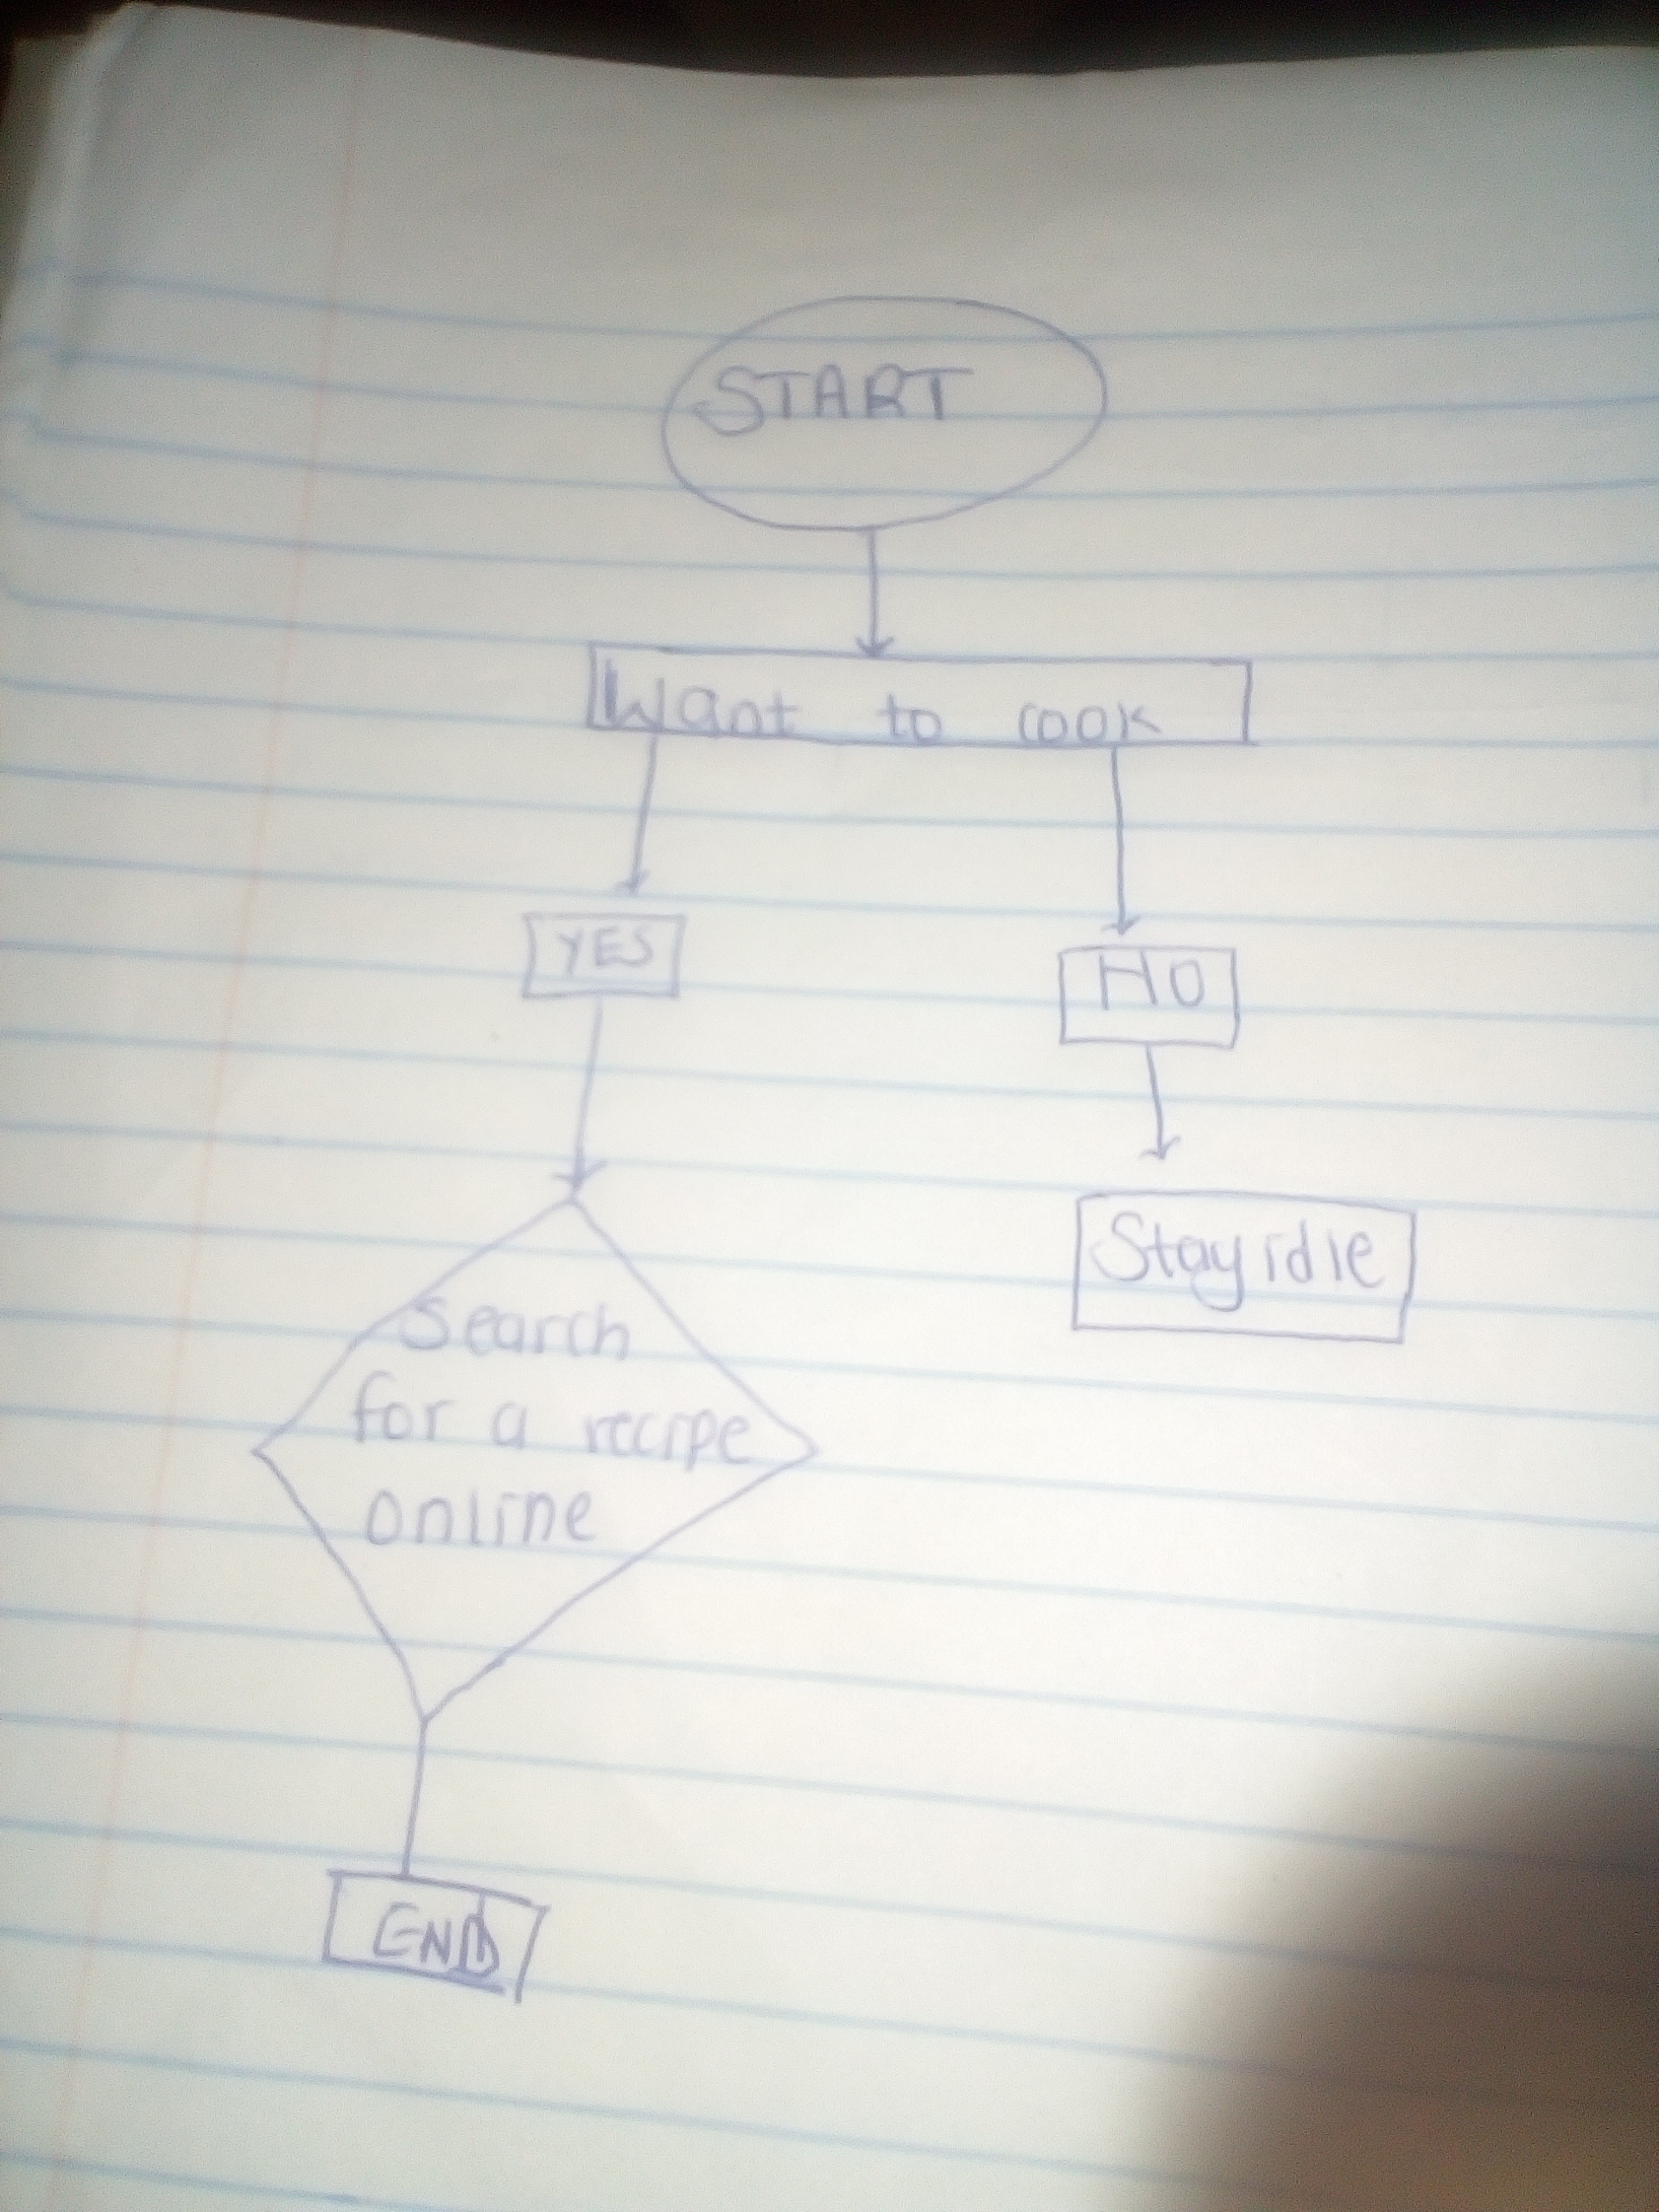 START
Want to cook
YES
NO
Stay idle
Search
for a recipe
online
END